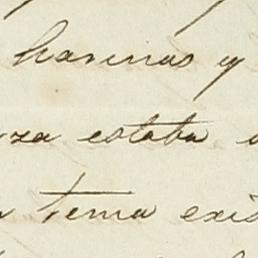 harinas y
za estaba
tema exis